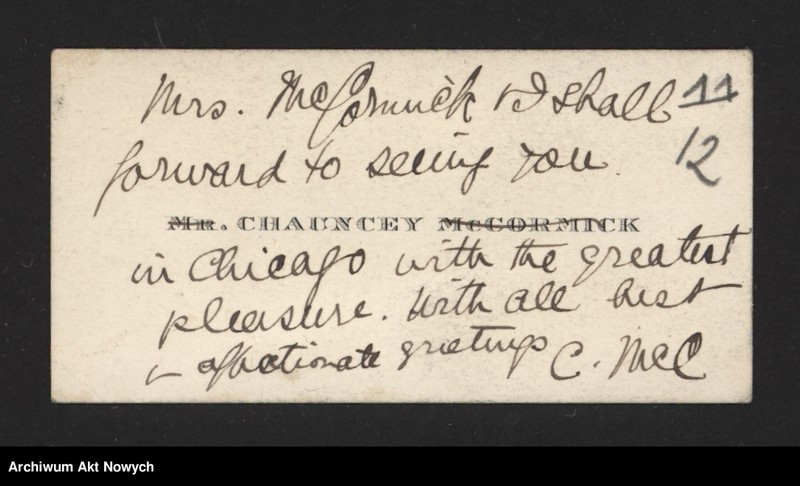 Mrs. McCormick & I shall 11
forward to seeing you 12
Mr. CHAUNCEY McCORMICK
in Chicago with the greatest
pleasure. With all best
& affectionate greetings C. McC
Archiwum Akt Nowych